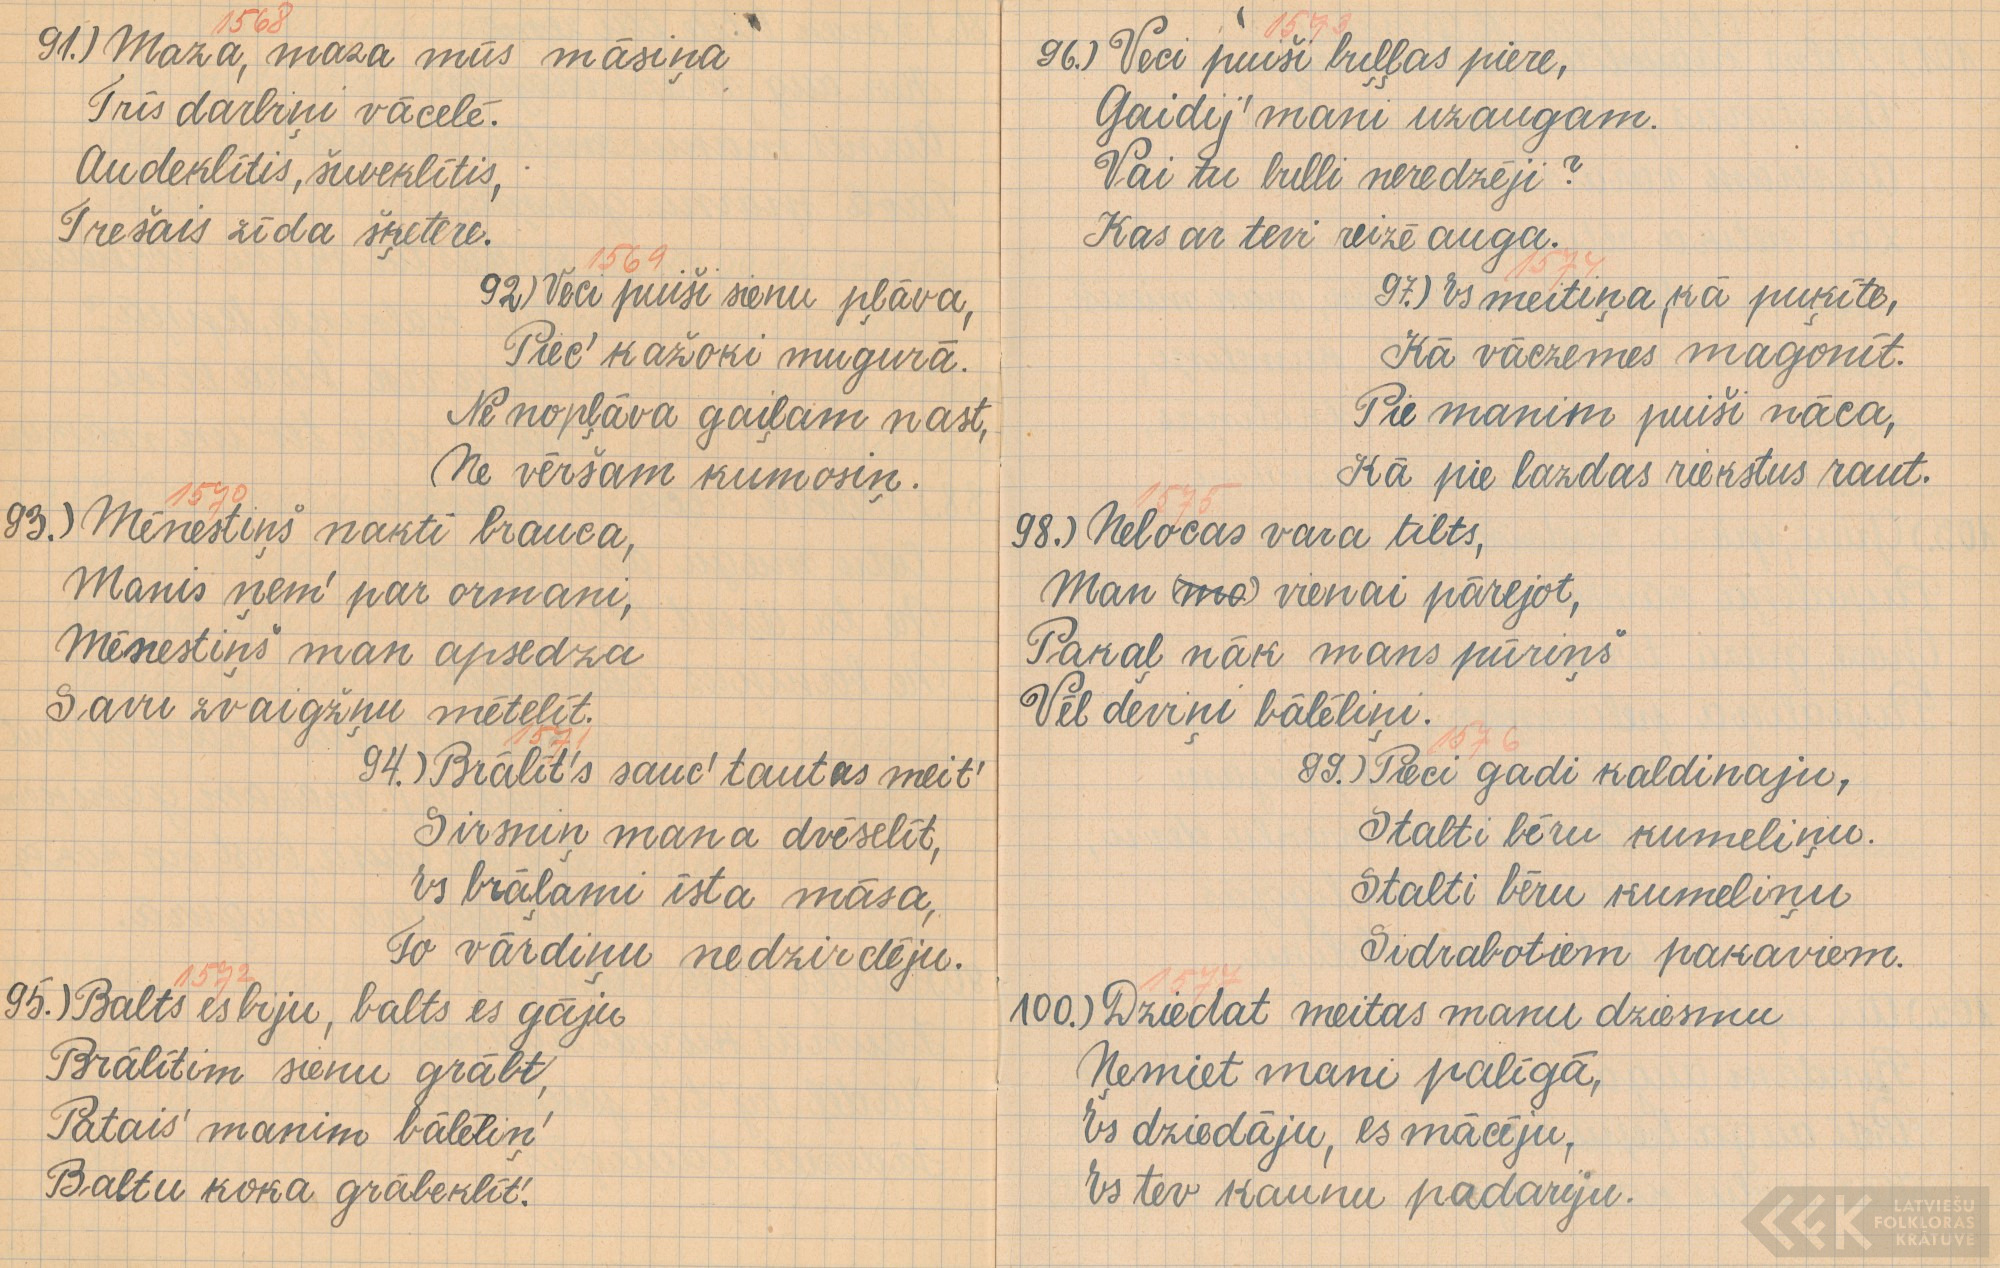 1568
91.) Maza, maza mūs māsiņa
Trīs darbiņi vācelē.
Audeklītis, šuveklītis,
Trešais zīda šķetere.
1569
92) Veci puiši sienu pļāva,
Piec' kažoki mugurā.
Ne nopļāva gaiļam nast,
Ne vēršam kumosiņ.
1570
93.) Mēnestiņš naktī brauca,
Manis ņem' par ormani,
Mēnestiņš man apsedza
Savu zvaigžņu mētelīt.
1571
94.) Brālīt's sauc' tautas meit'
Sirsniņ mana dvēselīt,
Es brāļami īsta māsa,
To vārdiņu nedzirdēju.
1572
95.) Balts es biju, balts es gāju
Brālītim sienu grābt,
Patais' manim bālēliņ'
Baltu koka grābeklīt'.
1573
96.) Veci puiši buļļas piere,
Gaidij' mani uzaugam.
Vai tu bulli neredzēji?
Kas ar tevi reizē auga.
1574
97.) Es meitiņa, kā puķīte,
Kā vāczemes magonīt.
Pie manim puiši nāca,
Kā pie lazdas riekstus raut.
1575
98.) Nelocas vara tilts,
Man (ma) vienai pārejot,
Pakaļ nāk mans pūriņš
Vēl deviņi bālēliņi.
1576
99.) Pieci gadi kaldinaju,
Stalti bēru kumeliņu.
Stalti bēru kumeliņu
Sidrabotiem pakaviem.
1577
100.) Dziedat meitas manu dziesmu
Ņemiet mani palīgā,
Es dziedāju, es mācēju,
Es tev kaunu padariju.
LATVIEŠU
FOLKLORAS
KRĀTUVE